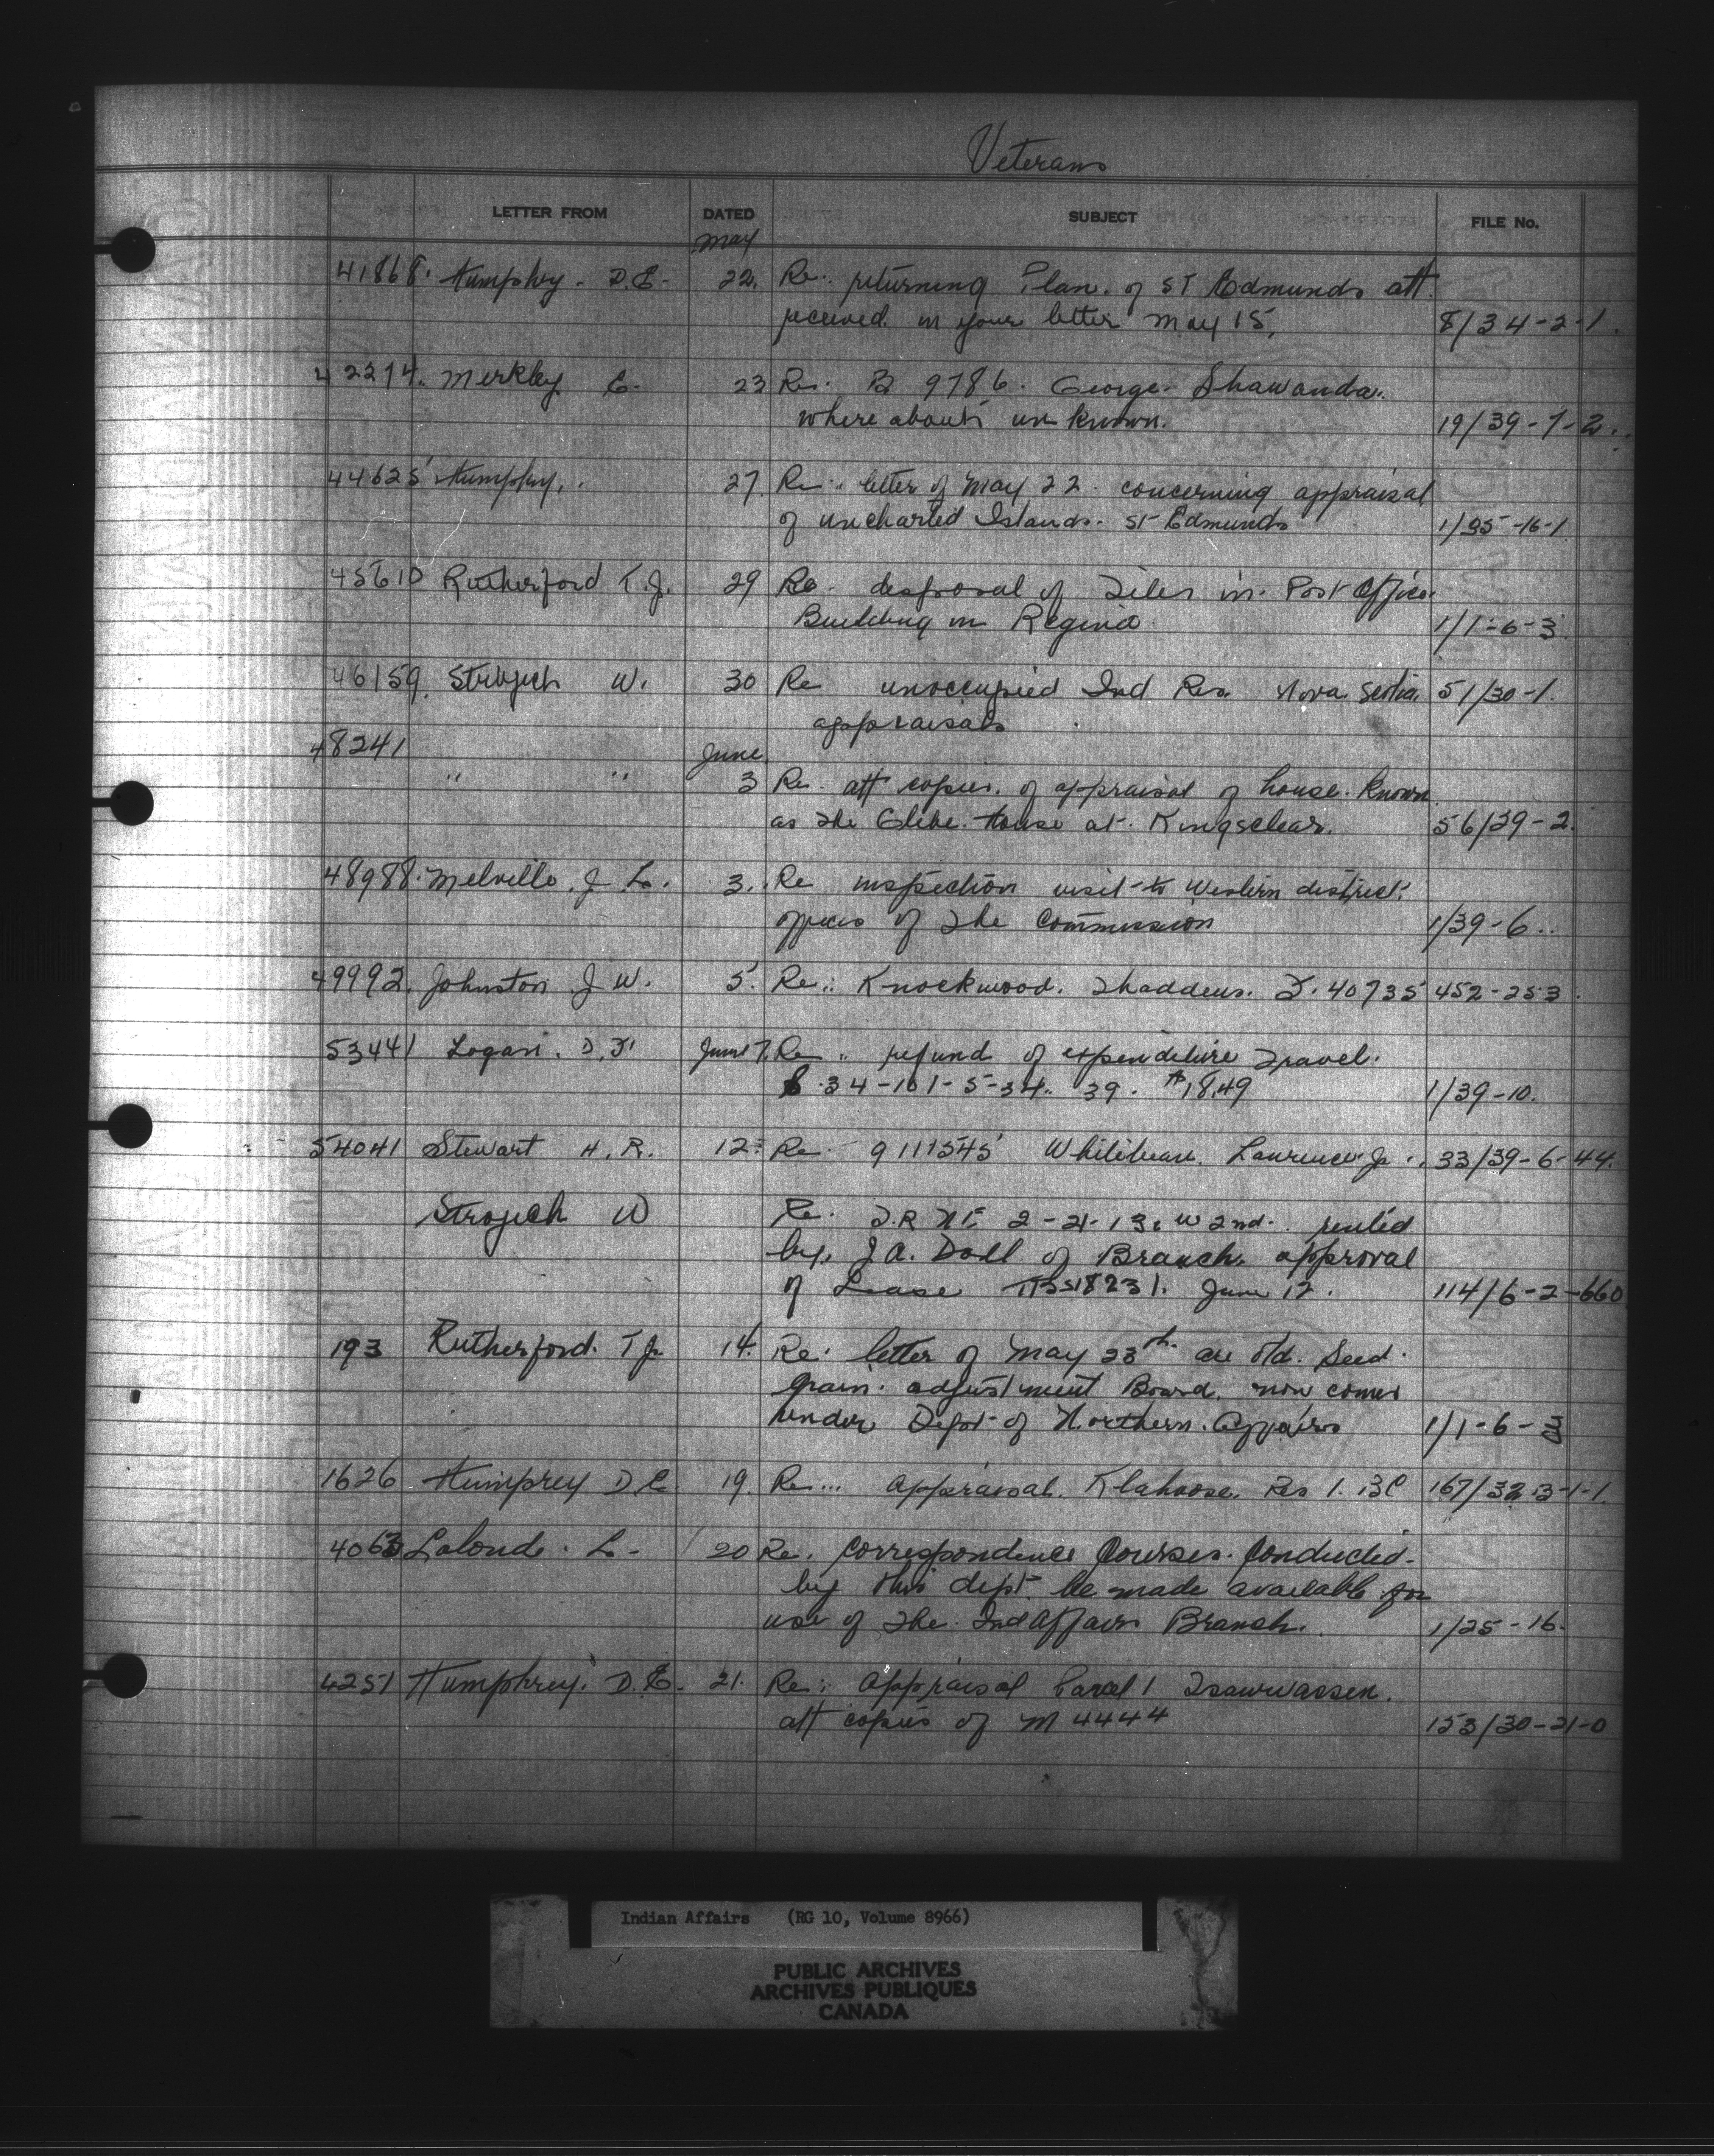 Veterans
LETTER FROM DATED SUBJECT FILE No.
May
41868. Humphry. D.E. 22. Re: returning Plan. of St Edmunds att.
received in your letter May 15, 8/34-2-1.
42274. Merkley E. 23 Re. B 9786. George Shawanda.
where abouts unknown. 19/39-7-2.
44625 Humphy. 27. Re: letter of May 22. concerning appraisal
of uncharted Islands. St Edmunds 1/35-16-1
45610 Rutherford T.J. 29 Re. disposal of Files in. Post Office.
Building in Regina 1/1-6-3.
46159. Strojich W. 30 Re unoccupied Ind Res. Nova Scotia. 51/30-1.
appraisals
48241 June
" " 3 Re. att copies. of appraisal of house. known
as The Glebe. House at. Kingsclear. 56/39-2.
48988. Melville. J L. 3. Re inspection visit to Western district.
offices of The Commission 1/39-6..
49992. Johnston J W. 5. Re: Knockwood. Thaddeus. F. 40735 452-25-3.
53441 Logan. D.F. June 7. Re refund of expenditure Travel.
34-101-5-34. 39. $18.49 1/39-10.
54041 Stewart H.R. 12. Re. 9111545 Whitebear. Lawrence Jo 33/39-6-44.
Strojich W Re. 2-21-13. W 2nd. rented
by, J A. Doll of Branch. approval
of Lease 18231. June 12. 114/6-2-660
193 Rutherford. T J. 14. Re. letter of May 23th. are old. Seed.
grain. adjustment Board. now comes
under Dept of Northern. Affairs 1/1-6-3
1626 Humprey D.E. 19. Re... appraisal. Klahoose. Res 1. BC 167/32.3-1-1.
4063 Lalonde. L. 20 Re. Correspondence Courses. Conducted.
by this dept be made available for
use of The. Ind Affairs Branch. 1/25-16.
4251 Humphrey. D.E. 21. Re: appraisal Parcel 1 Tsawwassen.
att copies of M 4444 153/30-21-0
Indian Affairs (RG 10, Volume 8966)
PUBLIC ARCHIVES
ARCHIVES PUBLIQUES
CANADA